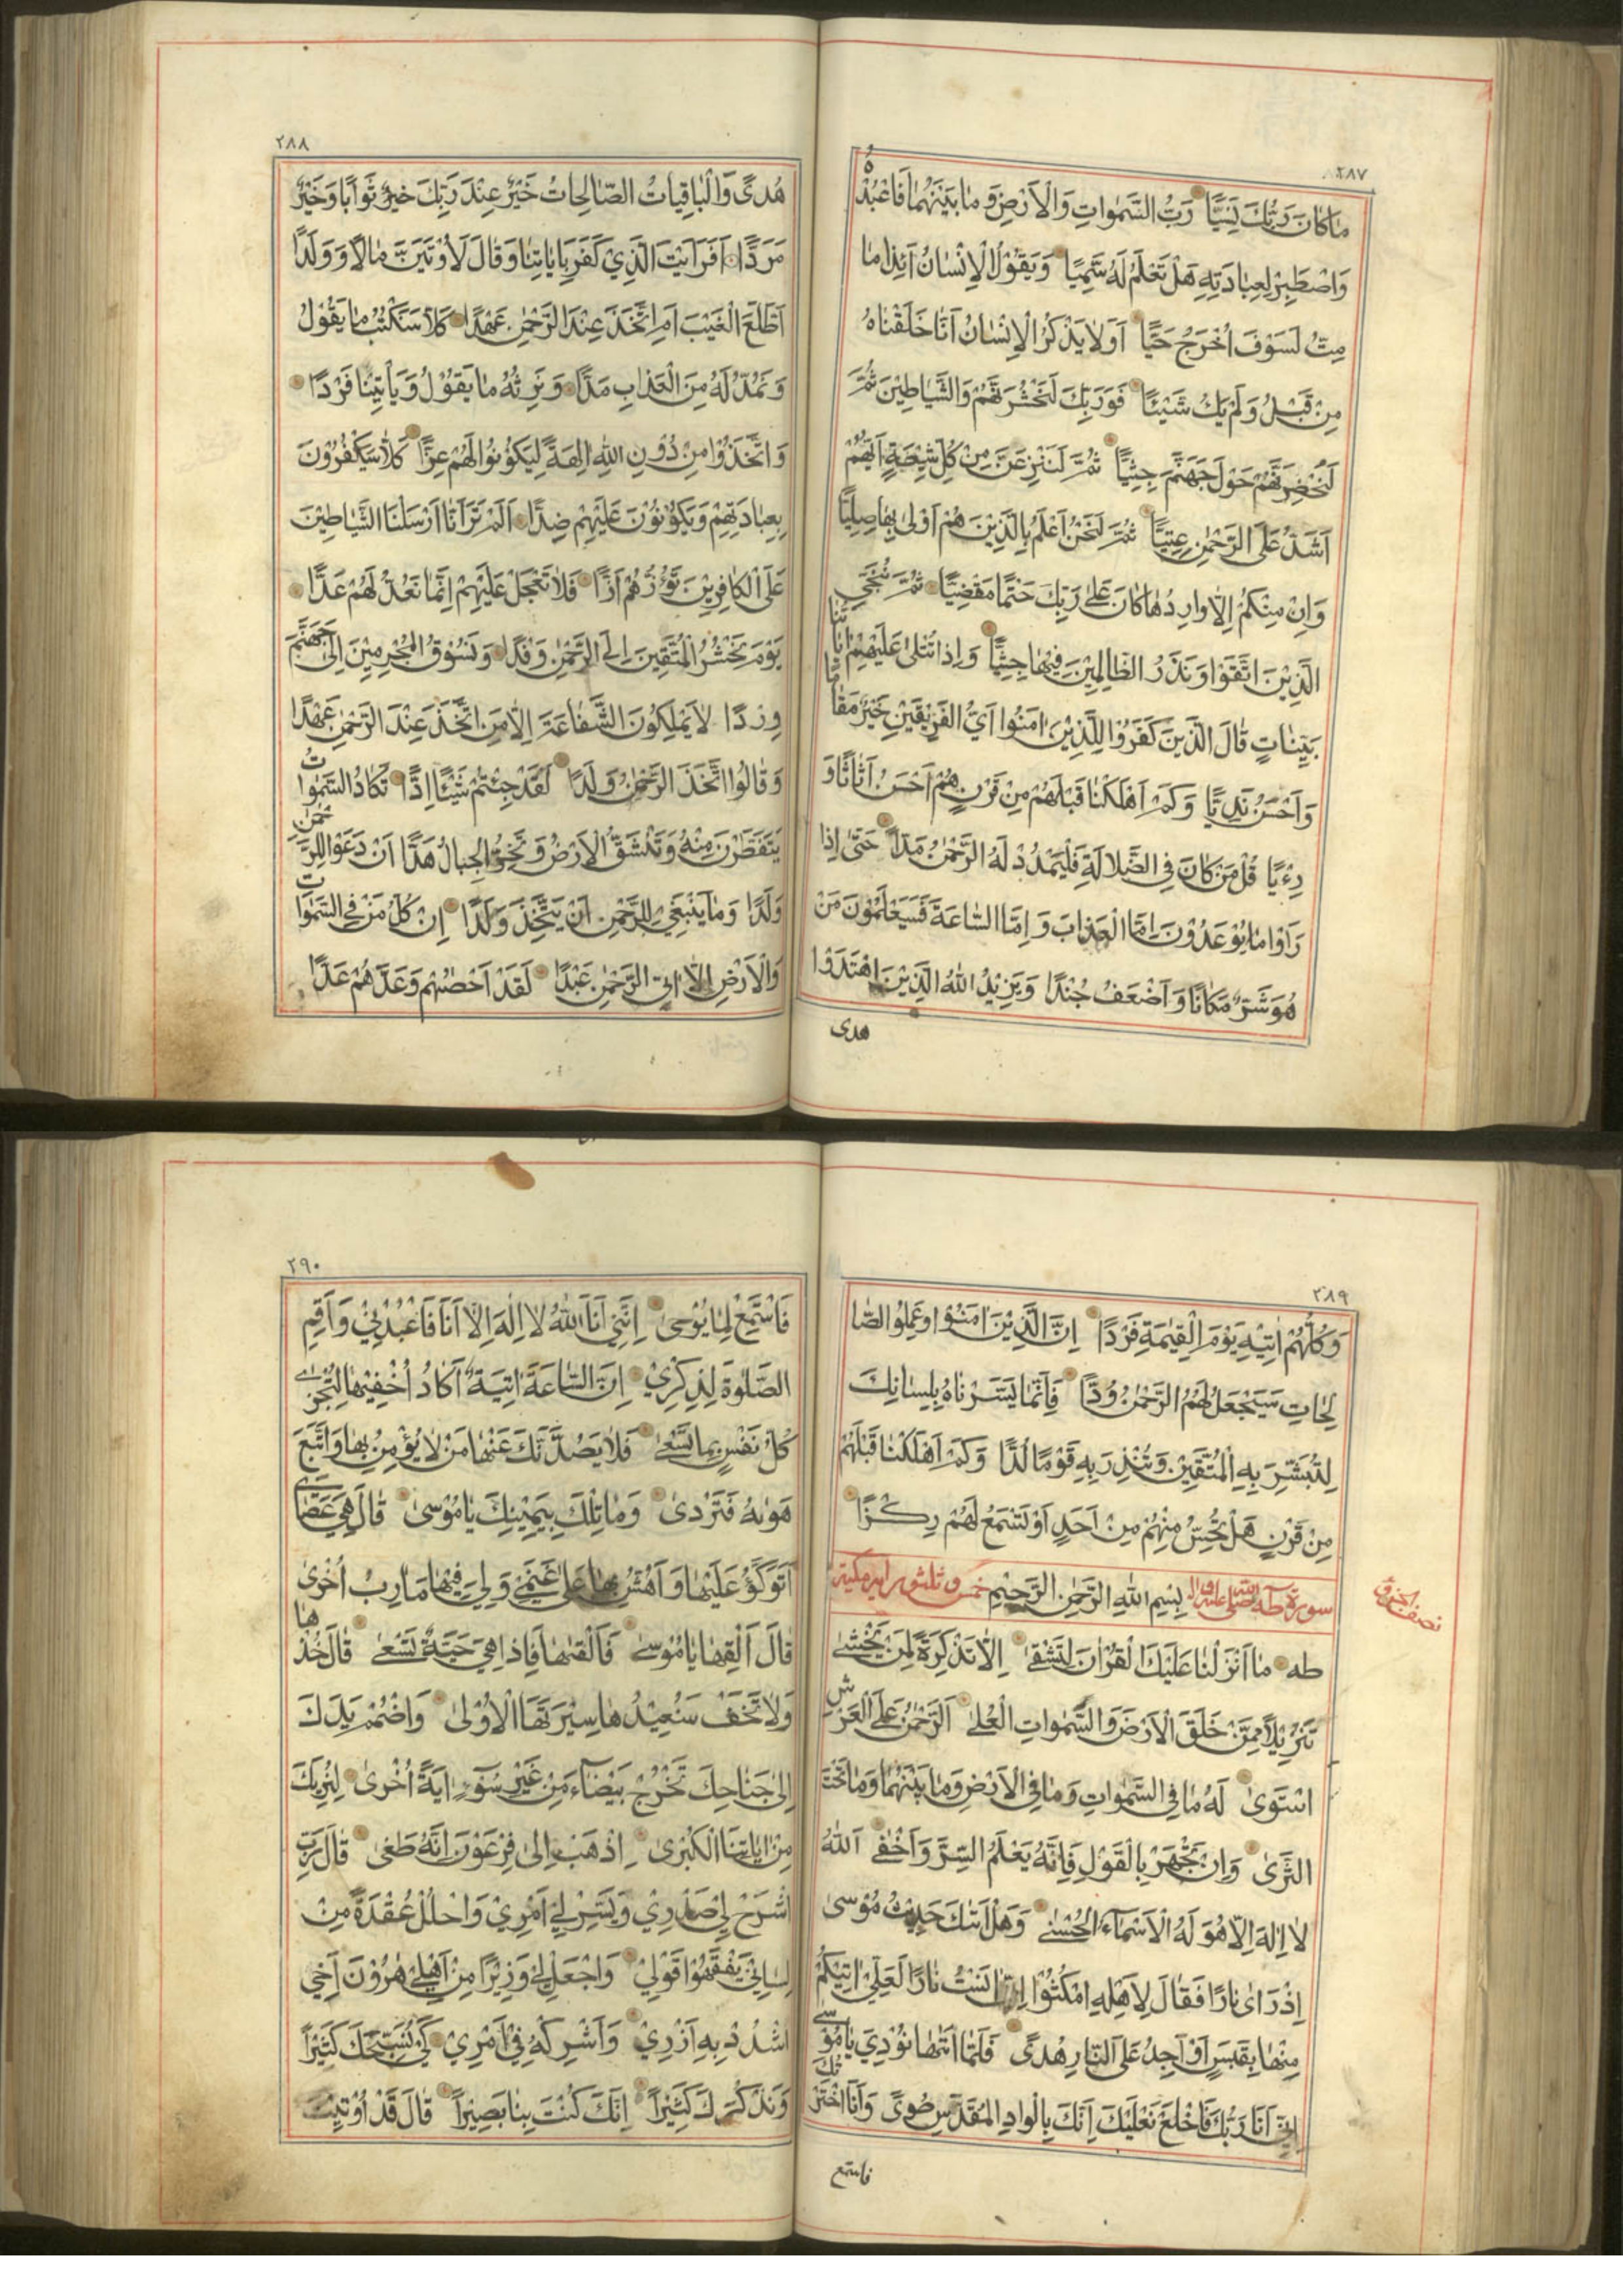 ٢٨٧
مَا كَانَ رَبُّكَ نَسِيًّا رَبُّ السَّمٰوَاتِ وَالْاَرْضِ وَمَا بَيْنَهُمَا فَاعْبُدْهُ
وَاصْطَبِرْ لِعِبَادَتِهِ هَلْ تَعْلَمُ لَهُ سَمِيًّا وَيَقُوْلُ الْاِنْسَانُ ءَاِذَا مَا
مِتُّ لَسَوْفَ اُخْرَجُ حَيًّا اَوَلَا يَذْكُرُ الْاِنْسَانُ اَنَّا خَلَقْنَاهُ
مِنْ قَبْلُ وَلَمْ يَكُ شَيْئًا فَوَرَبِّكَ لَنَحْشُرَنَّهُمْ وَالشَّيَاطِيْنَ ثُمَّ
لَنُحْضِرَنَّهُمْ حَوْلَ جَهَنَّمَ جِثِيًّا ثُمَّ لَنَنْزِعَنَّ مِنْ كُلِّ شِيْعَةٍ اَيُّهُمْ
اَشَدُّ عَلَى الرَّحْمٰنِ عِتِيًّا ثُمَّ لَنَحْنُ اَعْلَمُ بِالَّذِيْنَ هُمْ اَوْلٰى بِهَا صِلِيًّا
وَاِنْ مِنْكُمْ اِلَّا وَارِدُهَا كَانَ عَلٰى رَبِّكَ حَتْمًا مَقْضِيًّا ثُمَّ نُنَجِّي
الَّذِيْنَ اتَّقَوْا وَنَذَرُ الظَّالِمِيْنَ فِيْهَا جِثِيًّا وَاِذَا تُتْلٰى عَلَيْهِمْ اٰيَاتُنَا
بَيِّنَاتٍ قَالَ الَّذِيْنَ كَفَرُوْا لِلَّذِيْنَ اٰمَنُوْا اَيُّ الْفَرِيْقَيْنِ خَيْرٌ مَقَامًا
وَاَحْسَنُ نَدِيًّا وَكَمْ اَهْلَكْنَا قَبْلَهُمْ مِنْ قَرْنٍ هُمْ اَحْسَنُ اَثَاثًا وَ
رِءْيًا قُلْ مَنْ كَانَ فِي الضَّلَالَةِ فَلْيَمْدُدْ لَهُ الرَّحْمٰنُ مَدًّا حَتّٰى اِذَا
رَاَوْا مَا يُوْعَدُوْنَ اِمَّا الْعَذَابَ وَاِمَّا السَّاعَةَ فَسَيَعْلَمُوْنَ مَنْ
هُوَ شَرٌّ مَكَانًا وَاَضْعَفُ جُنْدًا وَيَزِيْدُ اللهُ الَّذِيْنَ اهْتَدَوْا
هدى
٢٨٨
هُدًى وَالْبَاقِيَاتُ الصَّالِحَاتُ خَيْرٌ عِنْدَ رَبِّكَ خَيْرٌ ثَوَابًا وَخَيْرٌ
مَرَدًّا اَفَرَاَيْتَ الَّذِيْ كَفَرَ بِاٰيَاتِنَا وَقَالَ لَاُوْتَيَنَّ مَالًا وَوَلَدًا
اَطَّلَعَ الْغَيْبَ اَمِ اتَّخَذَ عِنْدَ الرَّحْمٰنِ عَهْدًا كَلَّا سَنَكْتُبُ مَا يَقُوْلُ
وَنَمُدُّ لَهُ مِنَ الْعَذَابِ مَدًّا وَنَرِثُهُ مَا يَقُوْلُ وَيَأْتِيْنَا فَرْدًا
وَاتَّخَذُوْا مِنْ دُوْنِ اللهِ اٰلِهَةً لِيَكُوْنُوْا لَهُمْ عِزًّا كَلَّا سَيَكْفُرُوْنَ
بِعِبَادَتِهِمْ وَيَكُوْنُوْنَ عَلَيْهِمْ ضِدًّا اَلَمْ تَرَ اَنَّا اَرْسَلْنَا الشَّيَاطِيْنَ
عَلَى الْكَافِرِيْنَ تَؤُزُّهُمْ اَزًّا فَلَا تَعْجَلْ عَلَيْهِمْ اِنَّمَا نَعُدُّ لَهُمْ عَدًّا
يَوْمَ نَحْشُرُ الْمُتَّقِيْنَ اِلَى الرَّحْمٰنِ وَفْدًا وَنَسُوْقُ الْمُجْرِمِيْنَ اِلٰى جَهَنَّمَ
وِرْدًا لَا يَمْلِكُوْنَ الشَّفَاعَةَ اِلَّا مَنِ اتَّخَذَ عِنْدَ الرَّحْمٰنِ عَهْدًا
وَقَالُوا اتَّخَذَ الرَّحْمٰنُ وَلَدًا لَقَدْ جِئْتُمْ شَيْئًا اِدًّا تَكَادُ السَّمٰوَاتُ
يَتَفَطَّرْنَ مِنْهُ وَتَنْشَقُّ الْاَرْضُ وَتَخِرُّ الْجِبَالُ هَدًّا اَنْ دَعَوْا لِلرَّحْمٰنِ
وَلَدًا وَمَا يَنْبَغِيْ لِلرَّحْمٰنِ اَنْ يَتَّخِذَ وَلَدًا اِنْ كُلُّ مَنْ فِي السَّمٰوَاتِ
وَالْاَرْضِ اِلَّا اٰتِي الرَّحْمٰنِ عَبْدًا لَقَدْ اَحْصٰيهُمْ وَعَدَّهُمْ عَدًّا
٢٨٩
وَكُلُّهُمْ اٰتِيْهِ يَوْمَ الْقِيٰمَةِ فَرْدًا اِنَّ الَّذِيْنَ اٰمَنُوْا وَعَمِلُوا الصَّا
لِحَاتِ سَيَجْعَلُ لَهُمُ الرَّحْمٰنُ وُدًّا فَاِنَّمَا يَسَّرْنَاهُ بِلِسَانِكَ
لِتُبَشِّرَ بِهِ الْمُتَّقِيْنَ وَتُنْذِرَ بِهِ قَوْمًا لُدًّا وَكَمْ اَهْلَكْنَا قَبْلَهُمْ
مِنْ قَرْنٍ هَلْ تُحِسُّ مِنْهُمْ مِنْ اَحَدٍ اَوْ تَسْمَعُ لَهُمْ رِكْزًا
سورة طه بِسْمِ اللهِ الرَّحْمٰنِ الرَّحِيْمِ خمس و ثلثون اية مكية
طه مَا اَنْزَلْنَا عَلَيْكَ الْقُرْاٰنَ لِتَشْقٰى اِلَّا تَذْكِرَةً لِمَنْ يَخْشٰى
تَنْزِيْلًا مِمَّنْ خَلَقَ الْاَرْضَ وَالسَّمٰوَاتِ الْعُلٰى اَلرَّحْمٰنُ عَلَى الْعَرْشِ
اسْتَوٰى لَهُ مَا فِي السَّمٰوَاتِ وَمَا فِي الْاَرْضِ وَمَا بَيْنَهُمَا وَمَا تَحْتَ
الثَّرٰى وَاِنْ تَجْهَرْ بِالْقَوْلِ فَاِنَّهُ يَعْلَمُ السِّرَّ وَاَخْفٰى اَللهُ
لَا اِلٰهَ اِلَّا هُوَ لَهُ الْاَسْمَاءُ الْحُسْنٰى وَهَلْ اَتٰيكَ حَدِيْثُ مُوْسٰى
اِذْ رَاٰى نَارًا فَقَالَ لِاَهْلِهِ امْكُثُوْا اِنِّيْ اٰنَسْتُ نَارًا لَعَلِّيْ اٰتِيْكُمْ
مِنْهَا بِقَبَسٍ اَوْ اَجِدُ عَلَى النَّارِ هُدًى فَلَمَّا اَتٰيهَا نُوْدِيَ يَا مُوْسٰى
اِنِّيْ اَنَا رَبُّكَ فَاخْلَعْ نَعْلَيْكَ اِنَّكَ بِالْوَادِ الْمُقَدَّسِ طُوًى وَاَنَا اخْتَرْتُكَ
فاستمع
٢٩٠
فَاسْتَمِعْ لِمَا يُوْحٰى اِنَّنِيْ اَنَا اللهُ لَا اِلٰهَ اِلَّا اَنَا فَاعْبُدْنِيْ وَاَقِمِ
الصَّلٰوةَ لِذِكْرِيْ اِنَّ السَّاعَةَ اٰتِيَةٌ اَكَادُ اُخْفِيْهَا لِتُجْزٰى
كُلُّ نَفْسٍ بِمَا تَسْعٰى فَلَا يَصُدَّنَّكَ عَنْهَا مَنْ لَا يُؤْمِنُ بِهَا وَاتَّبَعَ
هَوٰيهُ فَتَرْدٰى وَمَا تِلْكَ بِيَمِيْنِكَ يَا مُوْسٰى قَالَ هِيَ عَصَايَ
اَتَوَكَّؤُ عَلَيْهَا وَاَهُشُّ بِهَا عَلٰى غَنَمِيْ وَلِيَ فِيْهَا مَاٰرِبُ اُخْرٰى
قَالَ اَلْقِهَا يَا مُوْسٰى فَاَلْقٰيهَا فَاِذَا هِيَ حَيَّةٌ تَسْعٰى قَالَ خُذْهَا
وَلَا تَخَفْ سَنُعِيْدُهَا سِيْرَتَهَا الْاُوْلٰى وَاضْمُمْ يَدَكَ
اِلٰى جَنَاحِكَ تَخْرُجْ بَيْضَاءَ مِنْ غَيْرِ سُوْءٍ اٰيَةً اُخْرٰى لِنُرِيَكَ
مِنْ اٰيَاتِنَا الْكُبْرٰى اِذْهَبْ اِلٰى فِرْعَوْنَ اِنَّهُ طَغٰى قَالَ رَبِّ
اشْرَحْ لِيْ صَدْرِيْ وَيَسِّرْ لِيْ اَمْرِيْ وَاحْلُلْ عُقْدَةً مِنْ
لِسَانِيْ يَفْقَهُوْا قَوْلِيْ وَاجْعَلْ لِيْ وَزِيْرًا مِنْ اَهْلِيْ هٰرُوْنَ اَخِي
اشْدُدْ بِهِ اَزْرِيْ وَاَشْرِكْهُ فِيْ اَمْرِيْ كَيْ نُسَبِّحَكَ كَثِيْرًا
وَنَذْكُرَكَ كَثِيْرًا اِنَّكَ كُنْتَ بِنَا بَصِيْرًا قَالَ قَدْ اُوْتِيْتَ